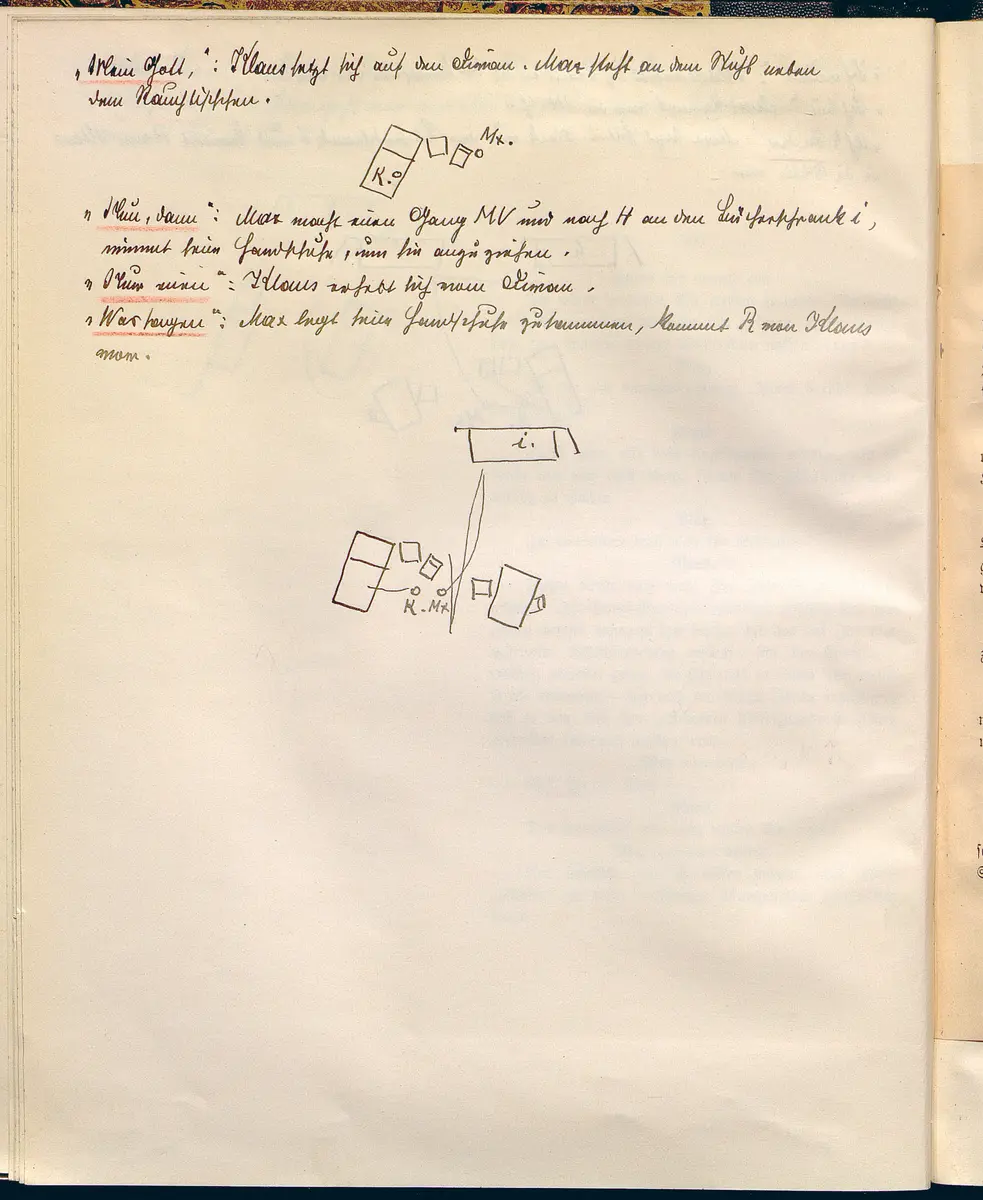 „Mein Gott,“: Klaus setzt sich auf den Divan. Max steht an dem Stuhl neben
dem Rauchtischchen.
Mx.
K.
„Nun, dann“: Max macht einen Gang MV und nach H an den Bücherschrank i,
nimmt seine Handschuhe, um sie anzuziehen.
„Nur einen“: Klaus erhebt sich vom Divan.
„Was sagen“: Max legt seine Handschuhe zusammen, kommt R von Klaus
vor.
i.
K. Mx